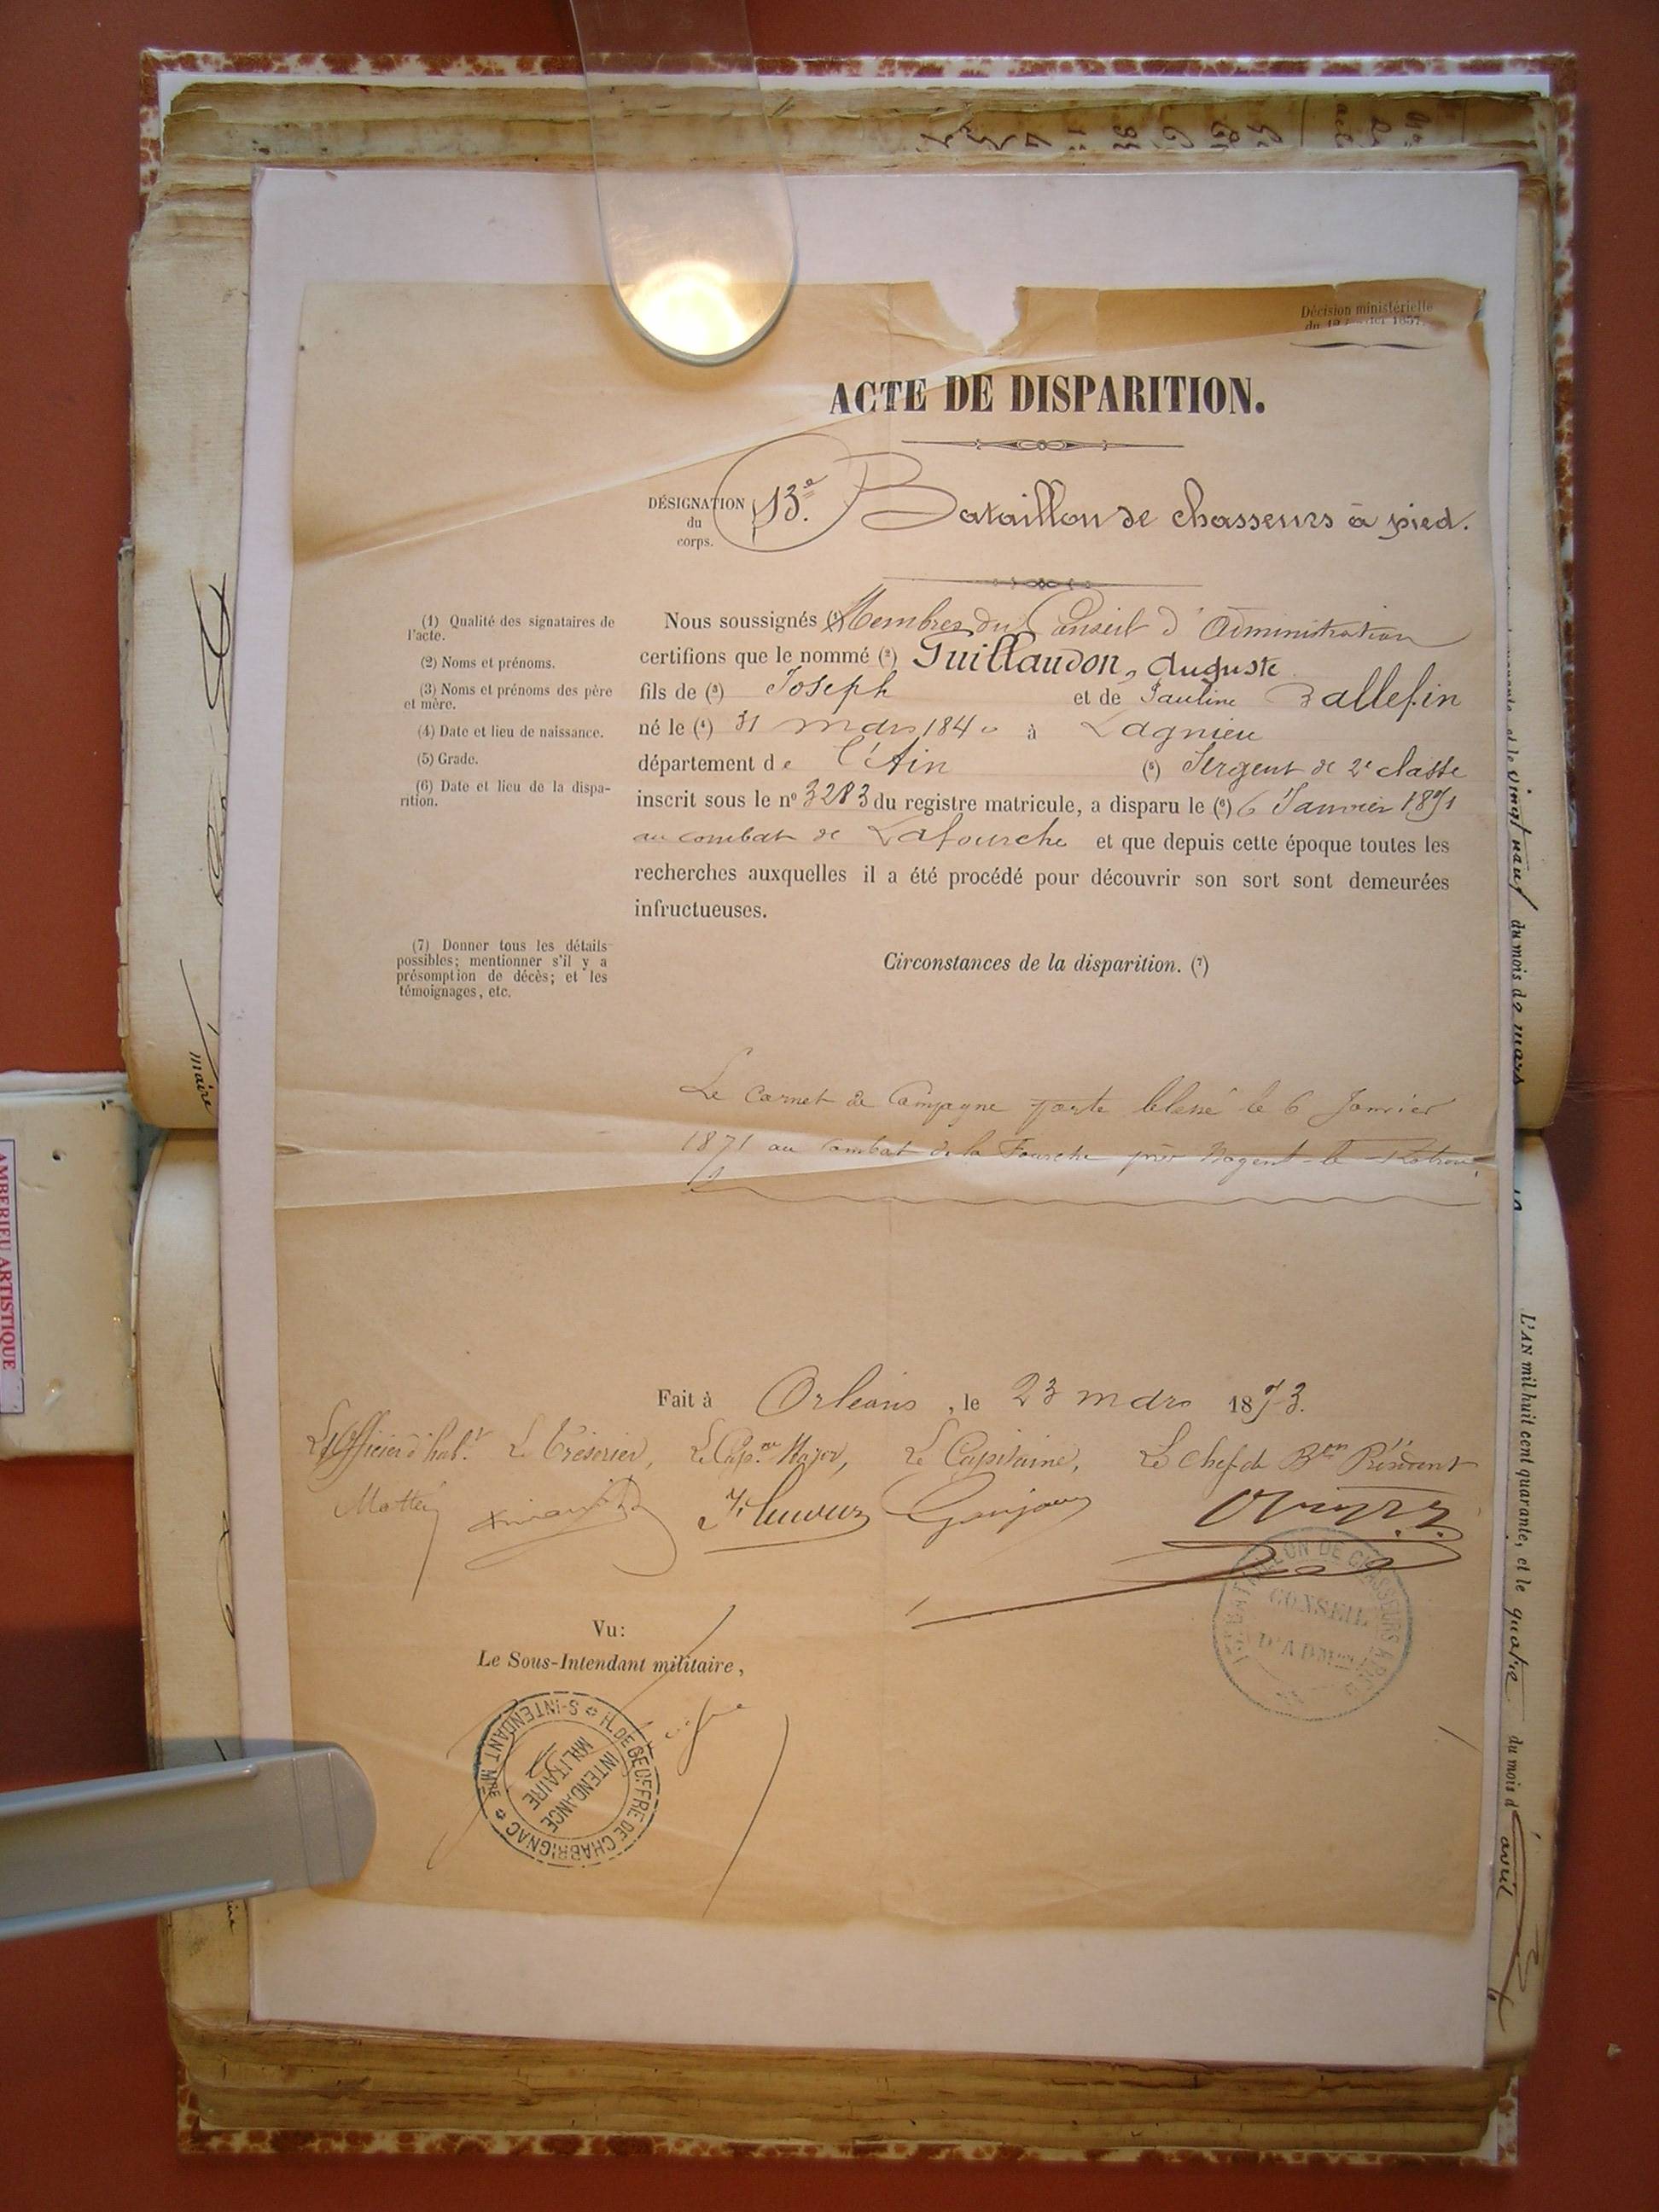 Décision ministérielle
ACTE DE DISPARITION.
DÉSIGNATION
du
corps.
13e Bataillon de chasseurs à pied.
(1) Qualité des signataires de
l'acte.
(2) Noms et prénoms.
(3) Noms et prénoms des père
et mère.
(4) Date et lieu de naissance.
(5) Grade.
(6) Date et lieu de la dispa-
rition.
Nous soussignés (1) Membres du Conseil d'Administration
certifions que le nommé (2) Guillaudon, Auguste
fils de (3) Joseph et de Pauline Ballefin
né le (4) 31 mars 1840 à Lagnieu
département de l'Ain (5) Sergent de 2e classe
inscrit sous le no 3283 du registre matricule, a disparu le (6) 6 Janvier 1871
au combat de Lafourche et que depuis cette époque toutes les
recherches auxquelles il a été procédé pour découvrir son sort sont demeurées
infructueuses.
(7) Donner tous les détails
possibles; mentionner s'il y a
présomption de décès; et les
témoignages, etc.
Circonstances de la disparition. (7)
Le Carnet de Campagne porte blessé le 6 Janvier
1871 au Combat de la Fourche près Nogent-le-Rotrou.
Fait à Orléans, le 23 mars 1873.
L'Officier d'habt. Le Trésorier, Le Capne Major, Le Capitaine, Le Chef de Bon Président
Vu:
Le Sous-Intendant militaire,
H. DE GEOFFRE DE CHABRIGNAC S-INTENDANT MRE
INTENDANCE
MILITAIRE
BATAILLON DE CHASSEURS A PIED
CONSEIL
D'ADMON
AMBERIEU ARTISTIQUE
maire
et le vingt neuf du mois de mars
L'AN mil huit cent quarante, et le quatre du mois d'avril